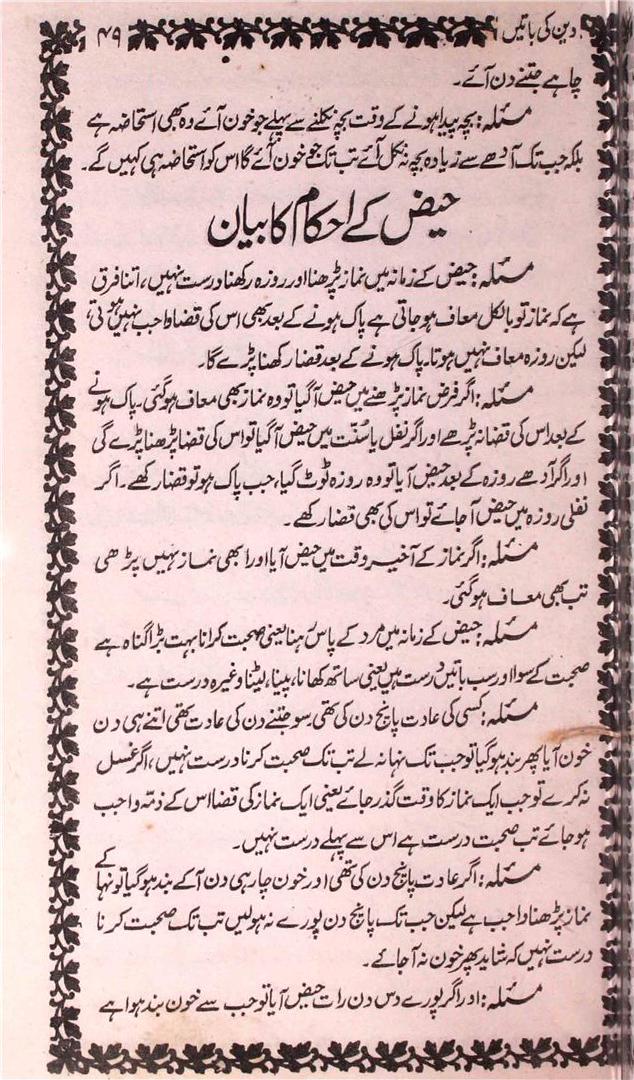 دین کی باتیں
۴۹
چاہے جتنے دن آئے۔
مسئلہ: بچہ پیدا ہونے کے وقت بچہ نکلنے سے پہلے جو خون آئے وہ بھی استحاضہ ہے
بلکہ جب تک آدھے سے زیادہ بچہ نہ نکل آئے تب تک جو خون آئے گا اس کو استحاضہ ہی کہیں گے۔
حیض کے احکام کا بیان
مسئلہ: حیض کے زمانہ میں نماز پڑھنا اور روزہ رکھنا درست نہیں، اتنا فرق
ہے کہ نماز تو بالکل معاف ہو جاتی ہے پاک ہونے کے بعد بھی اس کی قضا واجب نہیں ہوتی،
لیکن روزہ معاف نہیں ہوتا۔ پاک ہونے کے بعد قضا رکھنا پڑے گا۔
مسئلہ: اگر فرض نماز پڑھنے میں حیض آگیا تو وہ نماز بھی معاف ہوگئی۔ پاک ہونے
کے بعد اس کی قضا نہ پڑھے اور اگر نفل یا سنّت میں حیض آگیا تو اس کی قضا پڑھنا پڑے گی
اور اگر آدھے روزہ کے بعد حیض آیا تو وہ روزہ ٹوٹ گیا، جب پاک ہو تو قضا رکھے۔ اگر
نفلی روزہ میں حیض آجائے تو اس کی بھی قضا رکھے۔
مسئلہ: اگر نماز کے آخیر وقت میں حیض آیا اور ابھی نماز نہیں پڑھی
تب بھی معاف ہوگئی۔
مسئلہ: حیض کے زمانہ میں مرد کے پاس رہنا یعنی صحبت کرانا بہت بڑا گناہ ہے
صحبت کے سوا اور سب باتیں درست ہیں یعنی ساتھ کھانا، پینا، لیٹنا وغیرہ درست ہے۔
مسئلہ: کسی کی عادت پانچ دن کی تھی، سو جتنے دن کی عادت تھی اتنے ہی دن
خون آیا پھر بند ہوگیا تو جب تک نہا نہ لے تب تک صحبت کرنا درست نہیں، اگر غسل
نہ کرے تو جب ایک نماز کا وقت گذر جائے یعنی ایک نماز کی قضا اس کے ذمّہ واجب
ہو جائے تب صحبت درست ہے اس سے پہلے درست نہیں۔
مسئلہ: اگر عادت پانچ دن کی تھی اور خون چار ہی دن آکے بند ہوگیا تو نہا کے
نماز پڑھنا واجب ہے لیکن جب تک پانچ دن پورے نہ ہولیں تب تک صحبت کرنا
درست نہیں کہ شاید پھر خون نہ آجائے۔
مسئلہ: اور اگر پورے دس دن رات حیض آیا تو جب سے خون بند ہوا ہے